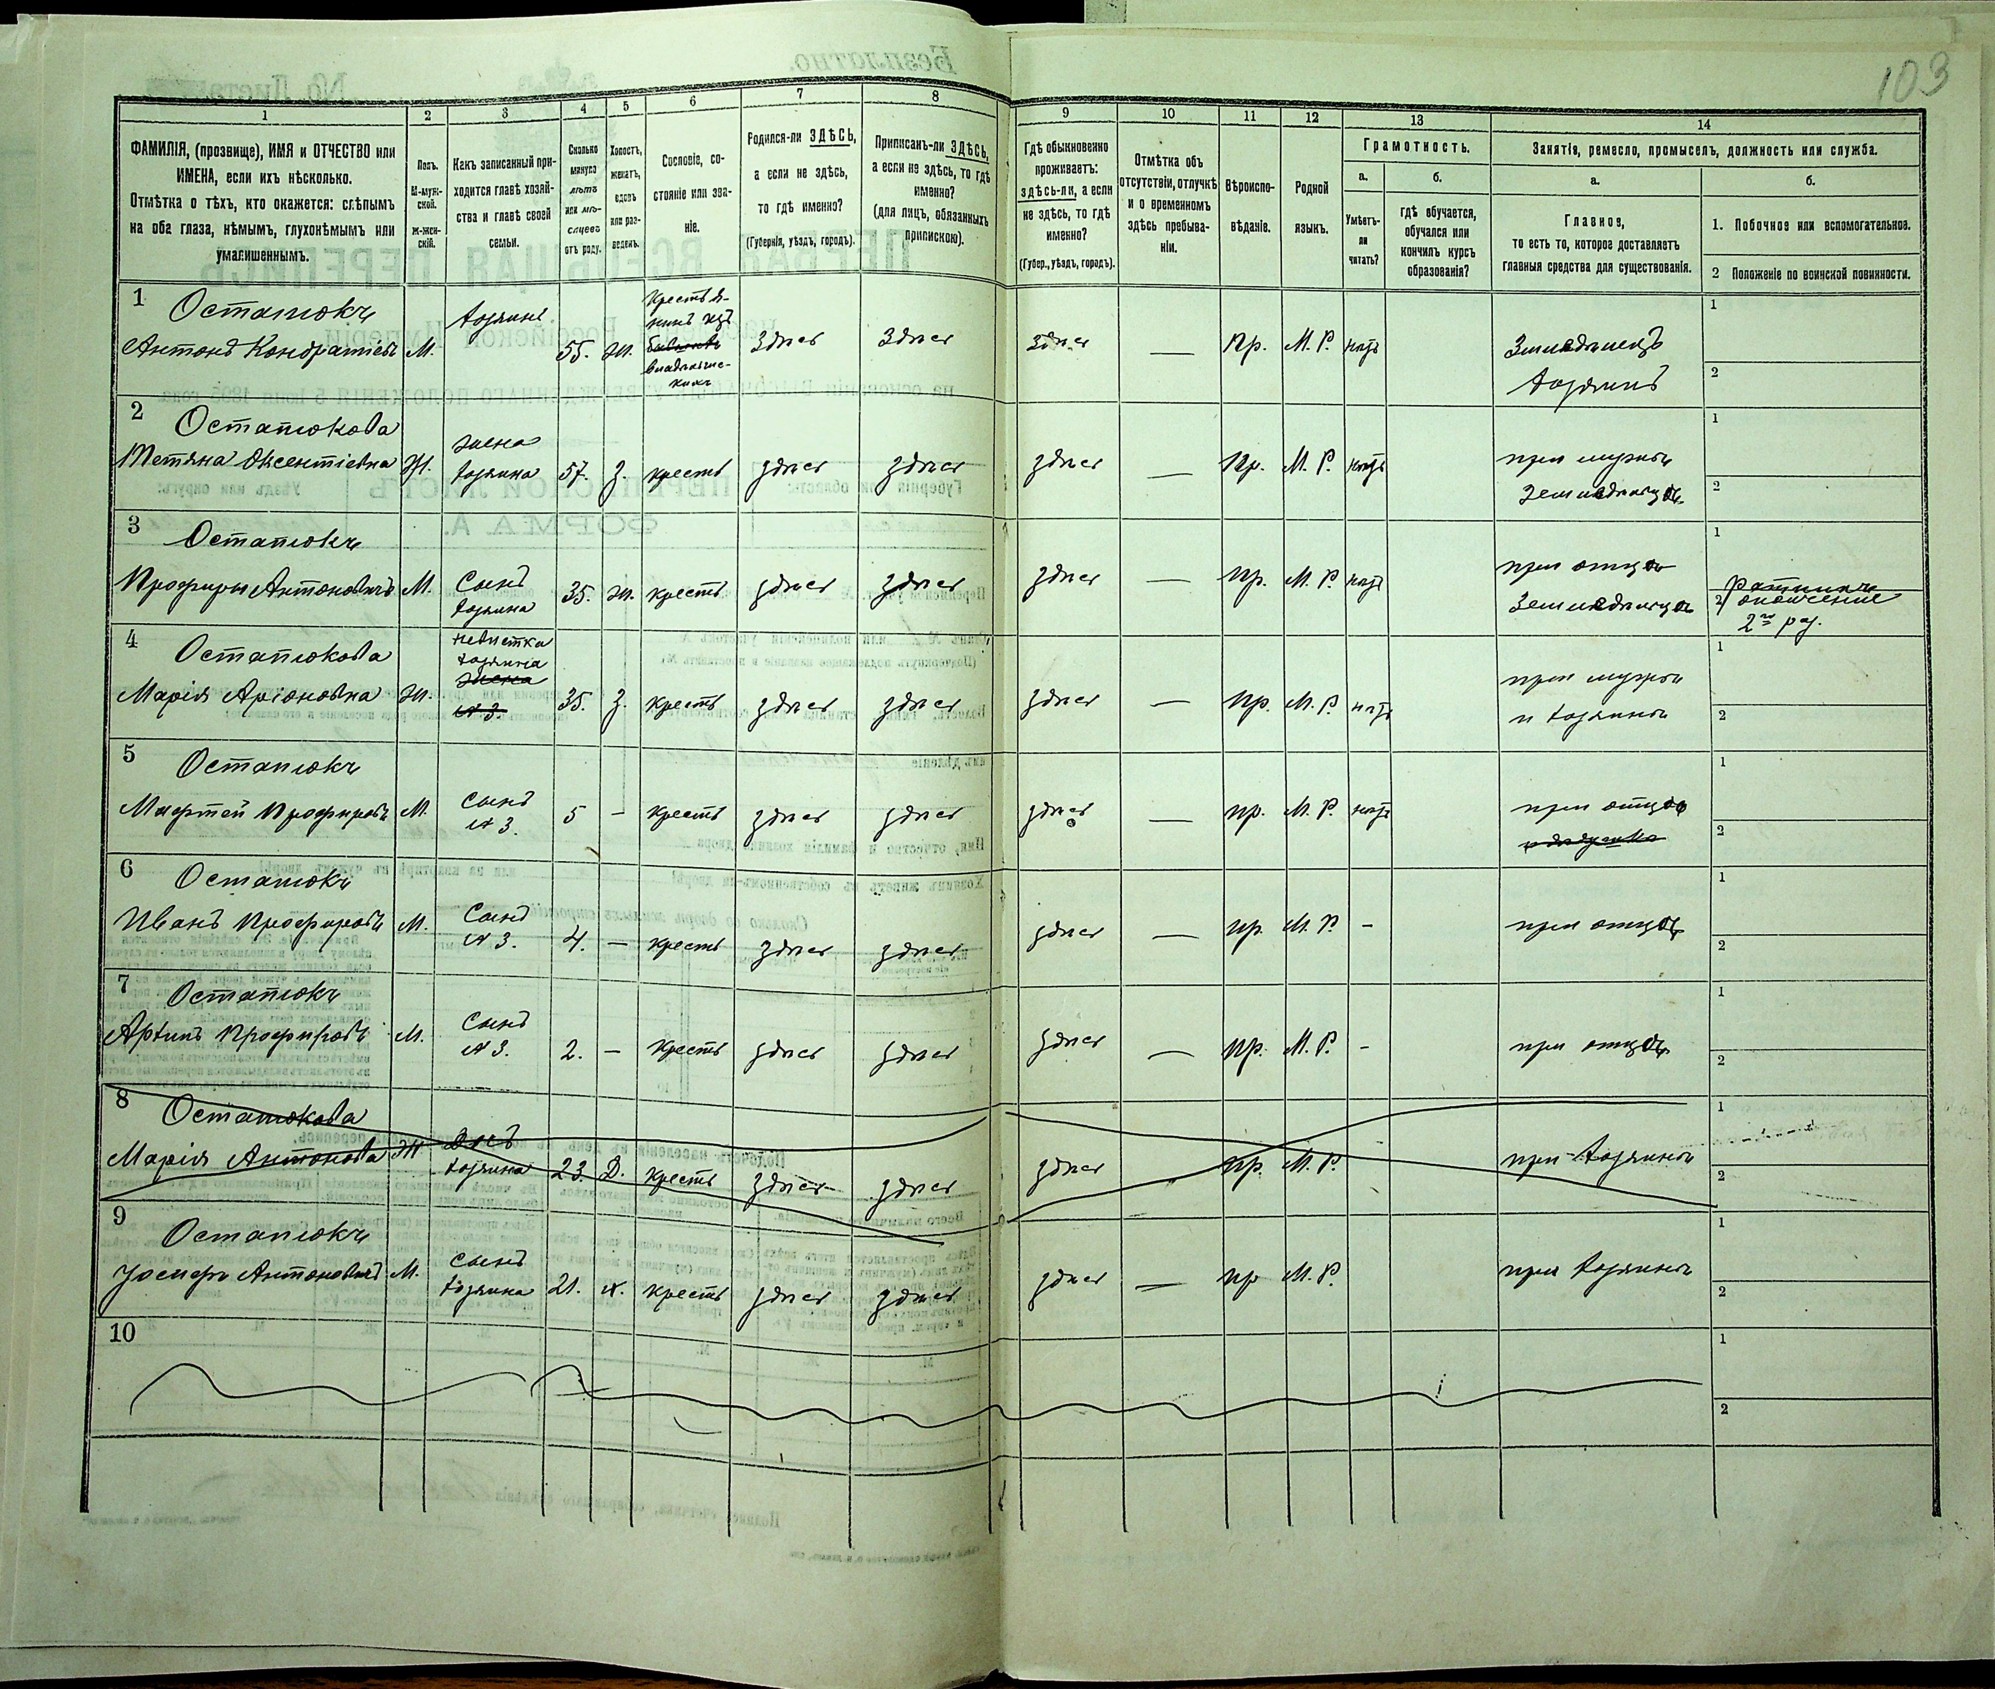 103
1
2
3
4
5
6
7
8
9
10
11
12
13
14
ФАМИЛІЯ, (прозвище), ИМЯ и ОТЧЕСТВО или
ИМЕНА, если ихъ нѣсколько.
Отмѣтка о тѣхъ, кто окажется: слѣпымъ
на оба глаза, нѣмымъ, глухонѣмымъ или
умалишеннымъ.
Полъ.
М-муж-
ской.
Ж-жен-
скій.
Какъ записанный при-
ходится главѣ хозяй-
ства и главѣ своей
семьи.
Сколько
минуло
лѣтъ
или мѣ-
сяцевъ
отъ роду.
Холостъ,
женатъ,
вдовъ
или раз-
веденъ.
Сословіе, со-
стояніе или зва-
ніе.
Родился-ли ЗДѢСЬ,
а если не здѣсь,
то гдѣ именно?
(Губернія, уѣздъ, городъ).
Приписанъ-ли ЗДѢСЬ,
а если не здѣсь, то гдѣ
именно?
(для лицъ, обязанныхъ
припискою).
Гдѣ обыкновенно
проживаетъ:
здѣсь-ли, а если
не здѣсь, то гдѣ
именно?
(Губер., уѣздъ, городъ).
Отмѣтка объ
отсутствіи, отлучкѣ
и о временномъ
здѣсь пребыва-
ніи.
Вѣроиспо-
вѣданіе.
Родной
языкъ.
Грамотность.
а.
Умѣетъ-
ли
читать?
б.
гдѣ обучается,
обучался или
кончилъ курсъ
образованія?
Занятія, ремесло, промыселъ, должность или служба.
а.
Главное,
то есть то, которое доставляетъ
главныя средства для существованія.
б.
1. Побочное или вспомогательное.
2 Положеніе по воинской повинности.
1 Остапюкъ
Антонъ Кондратіевъ М. хозяинъ 55. ж. Крестья-
нинъ изъ
владѣльче-
скихъ здѣсь здѣсь здѣсь — Пр. М. Р. нѣтъ Земледѣлецъ
хозяинъ 1 2
2 Остапюкова
Тетяна Оксентіевна Ж. жена
хозяина 57. з. крест здѣсь здѣсь здѣсь — Пр. М. Р. нѣтъ при мужѣ
земледѣлецъ 1 2
3 Остапюкъ
Профиръ Антоновичъ М. Сынъ
хозяина 35. ж. крест здѣсь здѣсь здѣсь — пр. М. Р. нѣтъ при отцѣ
Земледѣлецъ 1 2 ополченіе
2го раз.
4 Остапюкова
Марія Аріоновна ж. невѣстка
хозяина
жена
№ 3. 35. з. крест здѣсь здѣсь здѣсь — пр. М. Р. нѣтъ при мужѣ
и хозяинѣ 1 2
5 Остапюкъ
Мафтей Профировъ М. Сынъ
№ 3. 5 — крест здѣсь здѣсь здѣсь — пр. М. Р. нѣтъ при отцѣ
1 2
6 Остапюкъ
Иванъ Профировъ М. Сынъ
№ 3. 4. — крест здѣсь здѣсь здѣсь — пр М. Р. - при отцѣ 1 2
7 Остапюкъ
Архипъ Профировъ М. Сынъ
№ 3. 2. — крест здѣсь здѣсь здѣсь — пр. М. Р. - при отцѣ 1 2
8 Остапюкова
Марія Антонова Ж Дочь
хозяина 23. Д. крест здѣсь здѣсь здѣсь пр М. Р. при хозяинѣ 1 2
9 Остапюкъ
Іосифъ Антоновичъ М. сынъ
хозяина 21. х. крест здѣсь здѣсь здѣсь — пр М. Р. при хозяинѣ 1 2
10 1 2